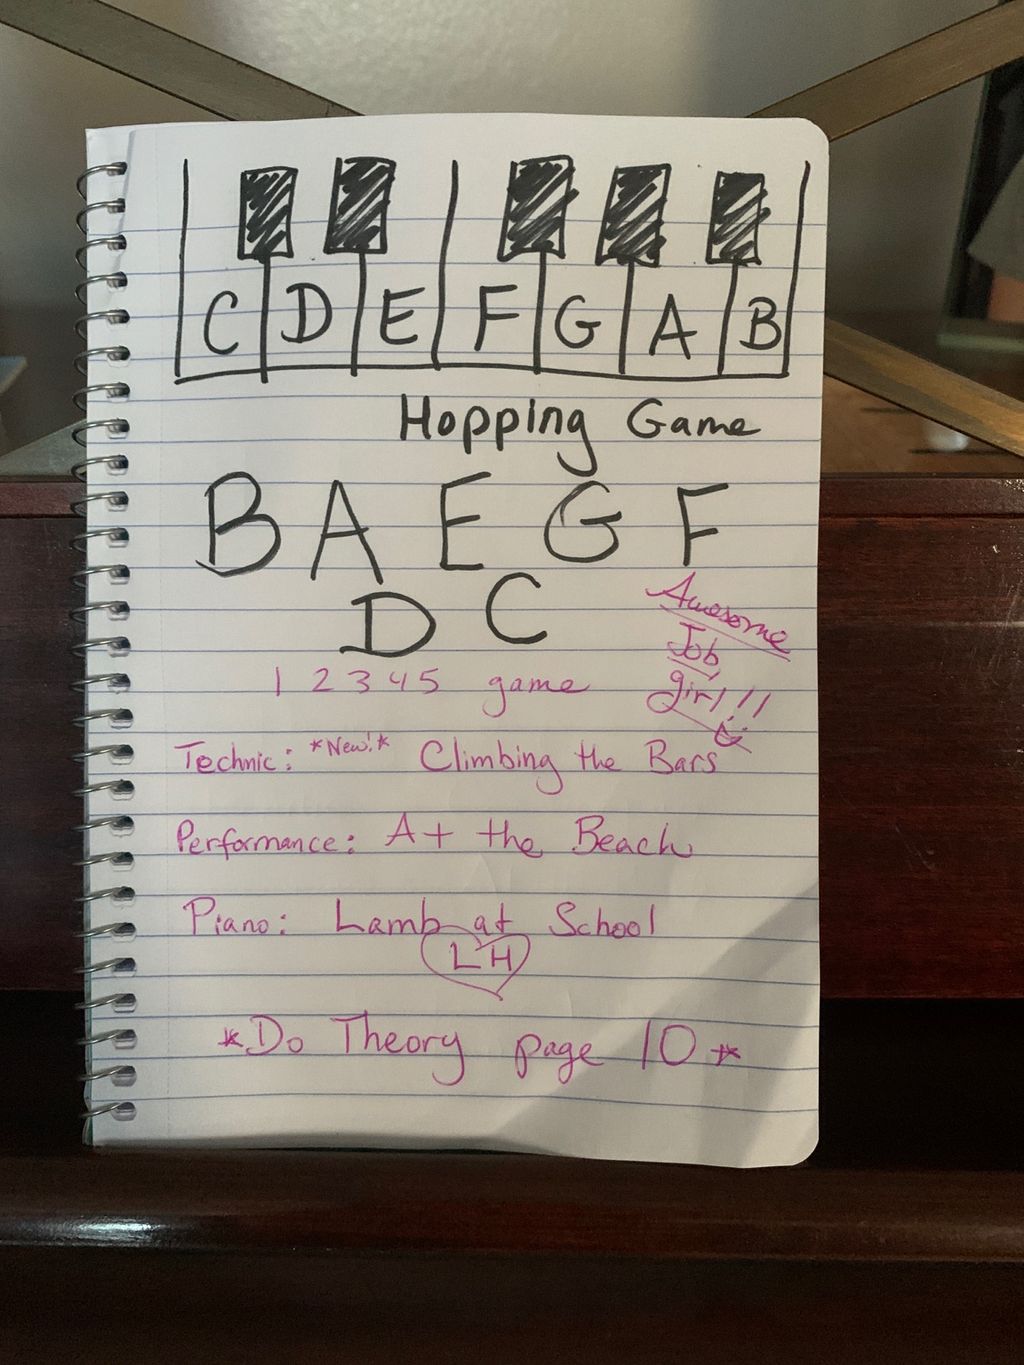 C D E F G A B
Hopping Game
B A E G F
D C
Awesome
Job,
girl!!
1 2 3 4 5 game
Technic: *New!* Climbing the Bars
Performance: At the Beach
Piano: Lamb at School
LH
*Do Theory page 10*